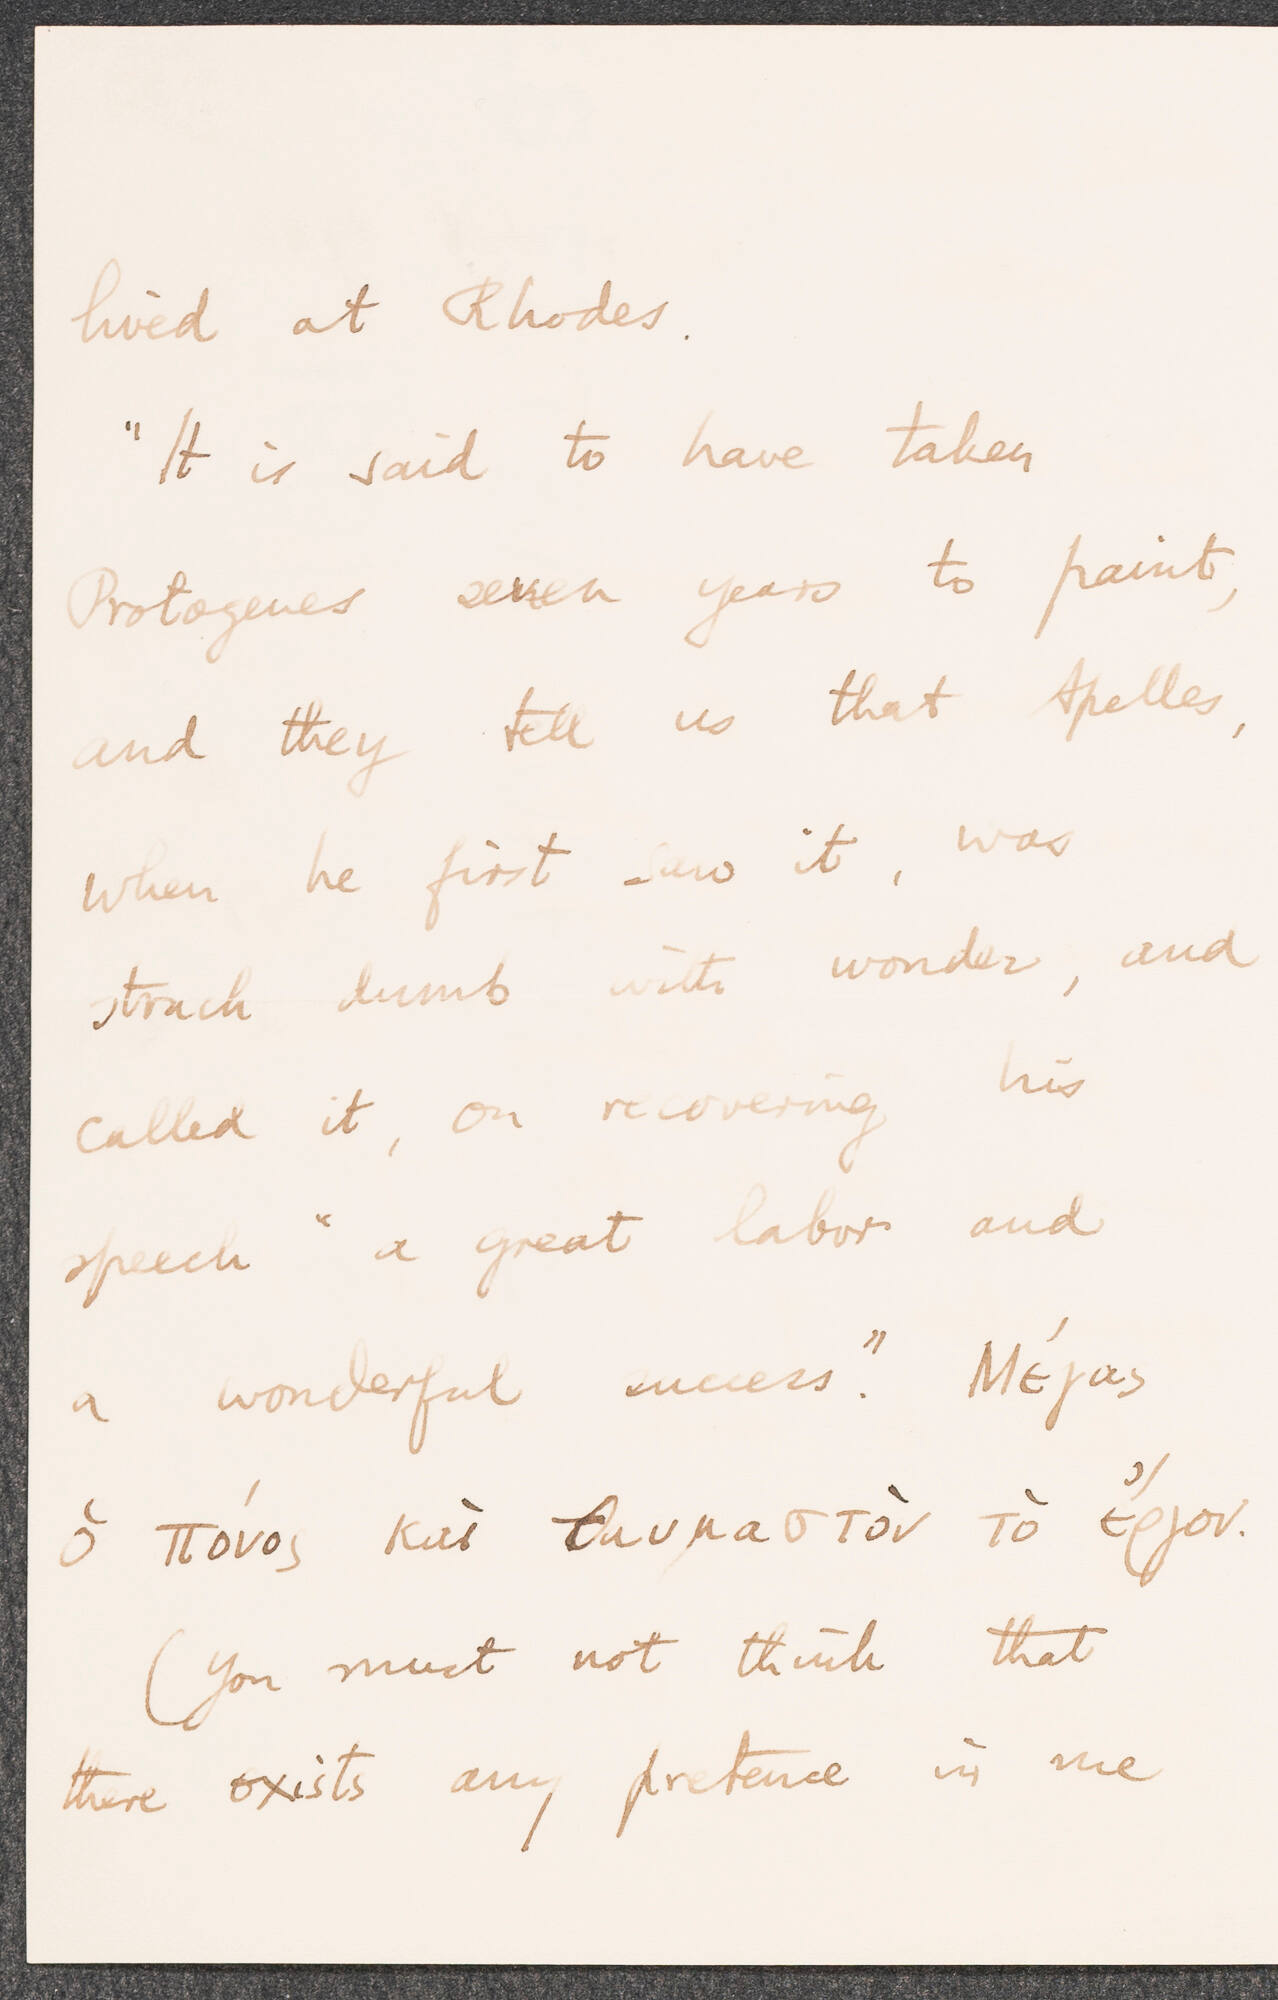 lived at Rhodes.
"It is said to have taken
Protogenes seven years to paint,
and they tell us that Apelles,
when he first saw it, was
struck dumb with wonder, and
called it, on recovering his
speech "a great labor and
a wonderful success." Μέγας
ὁ πόνος καὶ θαυμαστὸν τὸ ἔργον.
(You must not think that
there exists any pretence in me